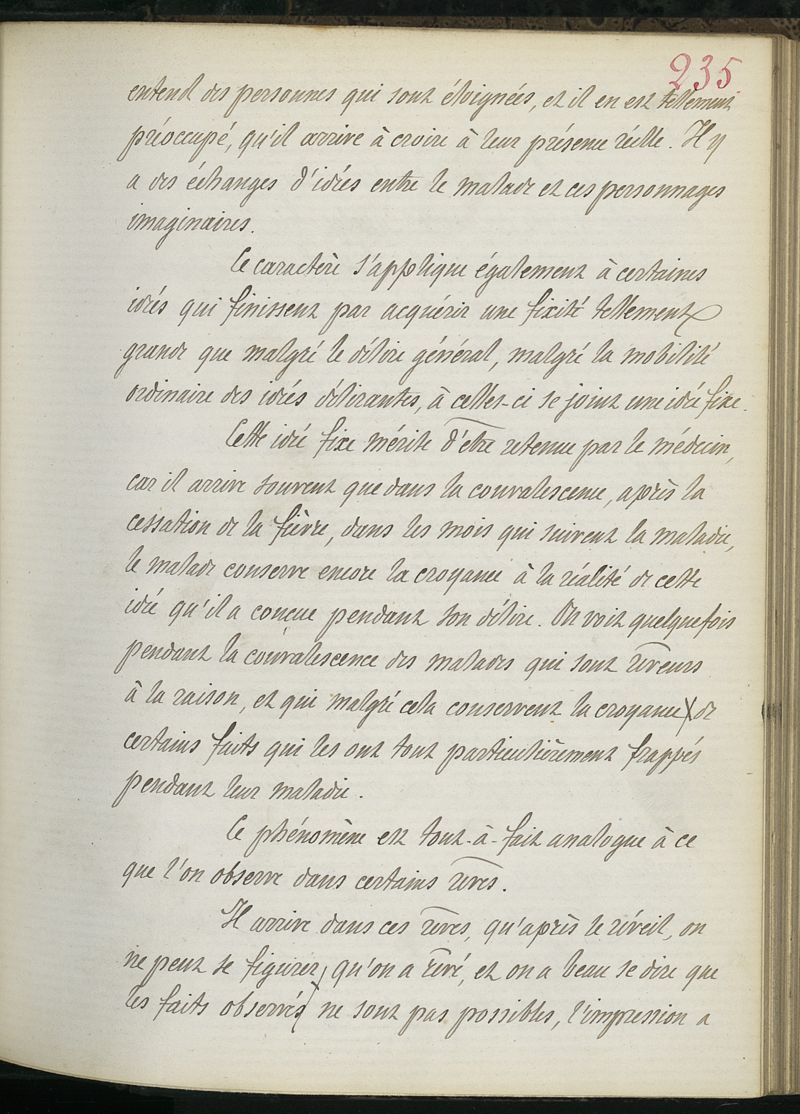 235
entend des personnes qui sont éloignées, et il en est tellement
préoccupé, qu'il arrive à croire à leur présence réelle. Il y
a des échanges d'idées entre le malade et ces personnages
imaginaires.
Ce caractère s'applique également à certaines
idées qui finissent par acquérir une fixité tellement
grande que malgré le délire général, malgré la mobilité
ordinaire des idées délirantes, à celles-ci se joint une idée fixe.
Cette idée fixe mérite d'être retenue par le médecin,
car il arrive souvent que dans la convalescence, après la
cessation de la fièvre, dans les mois qui suivent la maladie,
le malade conserve encore la croyance à la réalité de cette
idée qu'il a conçue pendant son délire. On voit quelquefois
pendant la convalescence des malades qui sont
à la raison, et qui malgré cela conservent la croyance de
certains faits qui les ont tout particulièrement frappés
pendant leur maladie.
Ce phénomène est tout-à-fait analogue à ce
que l'on observe dans certains rêves.
Il arrive dans ces rêves, qu'après le réveil, on
ne peut se figurer qu'on a rêvé, et on a beau se dire que
les faits observés ne sont pas possibles, l'impression a